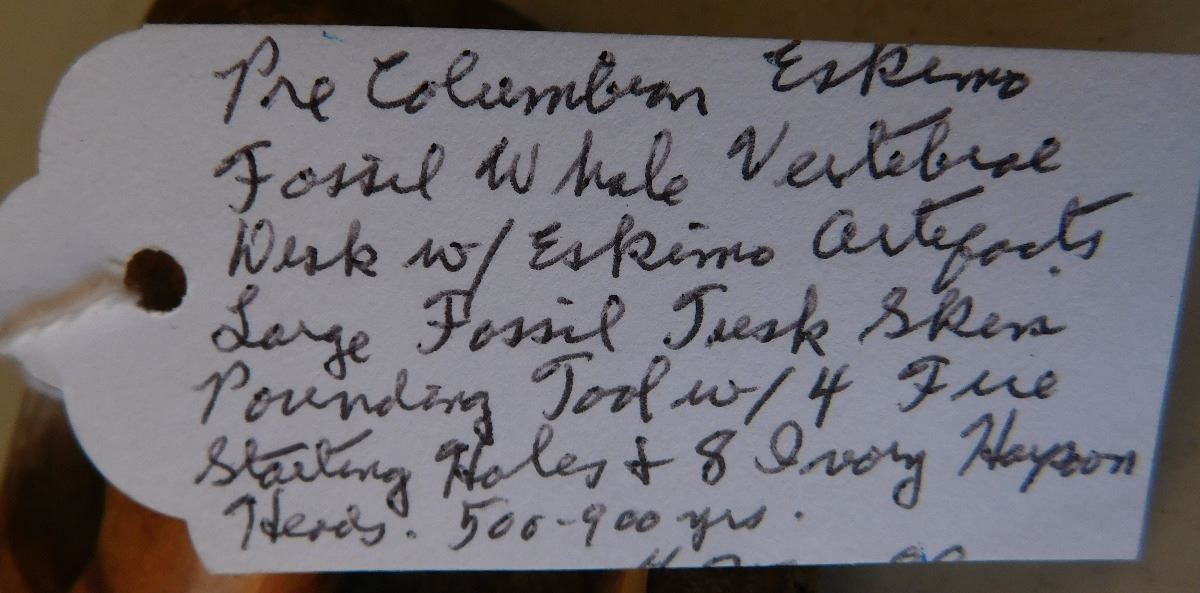 Pre Columbian Eskimo
Fossil Whale Vertebrae
Disk w/ Eskimo Artefacts
Large Fossil Tusk Skin
Pounding Tool w/ 4 Fire
Starting Holes + 8 Ivory Harpoon
Heads. 500-900 yrs.